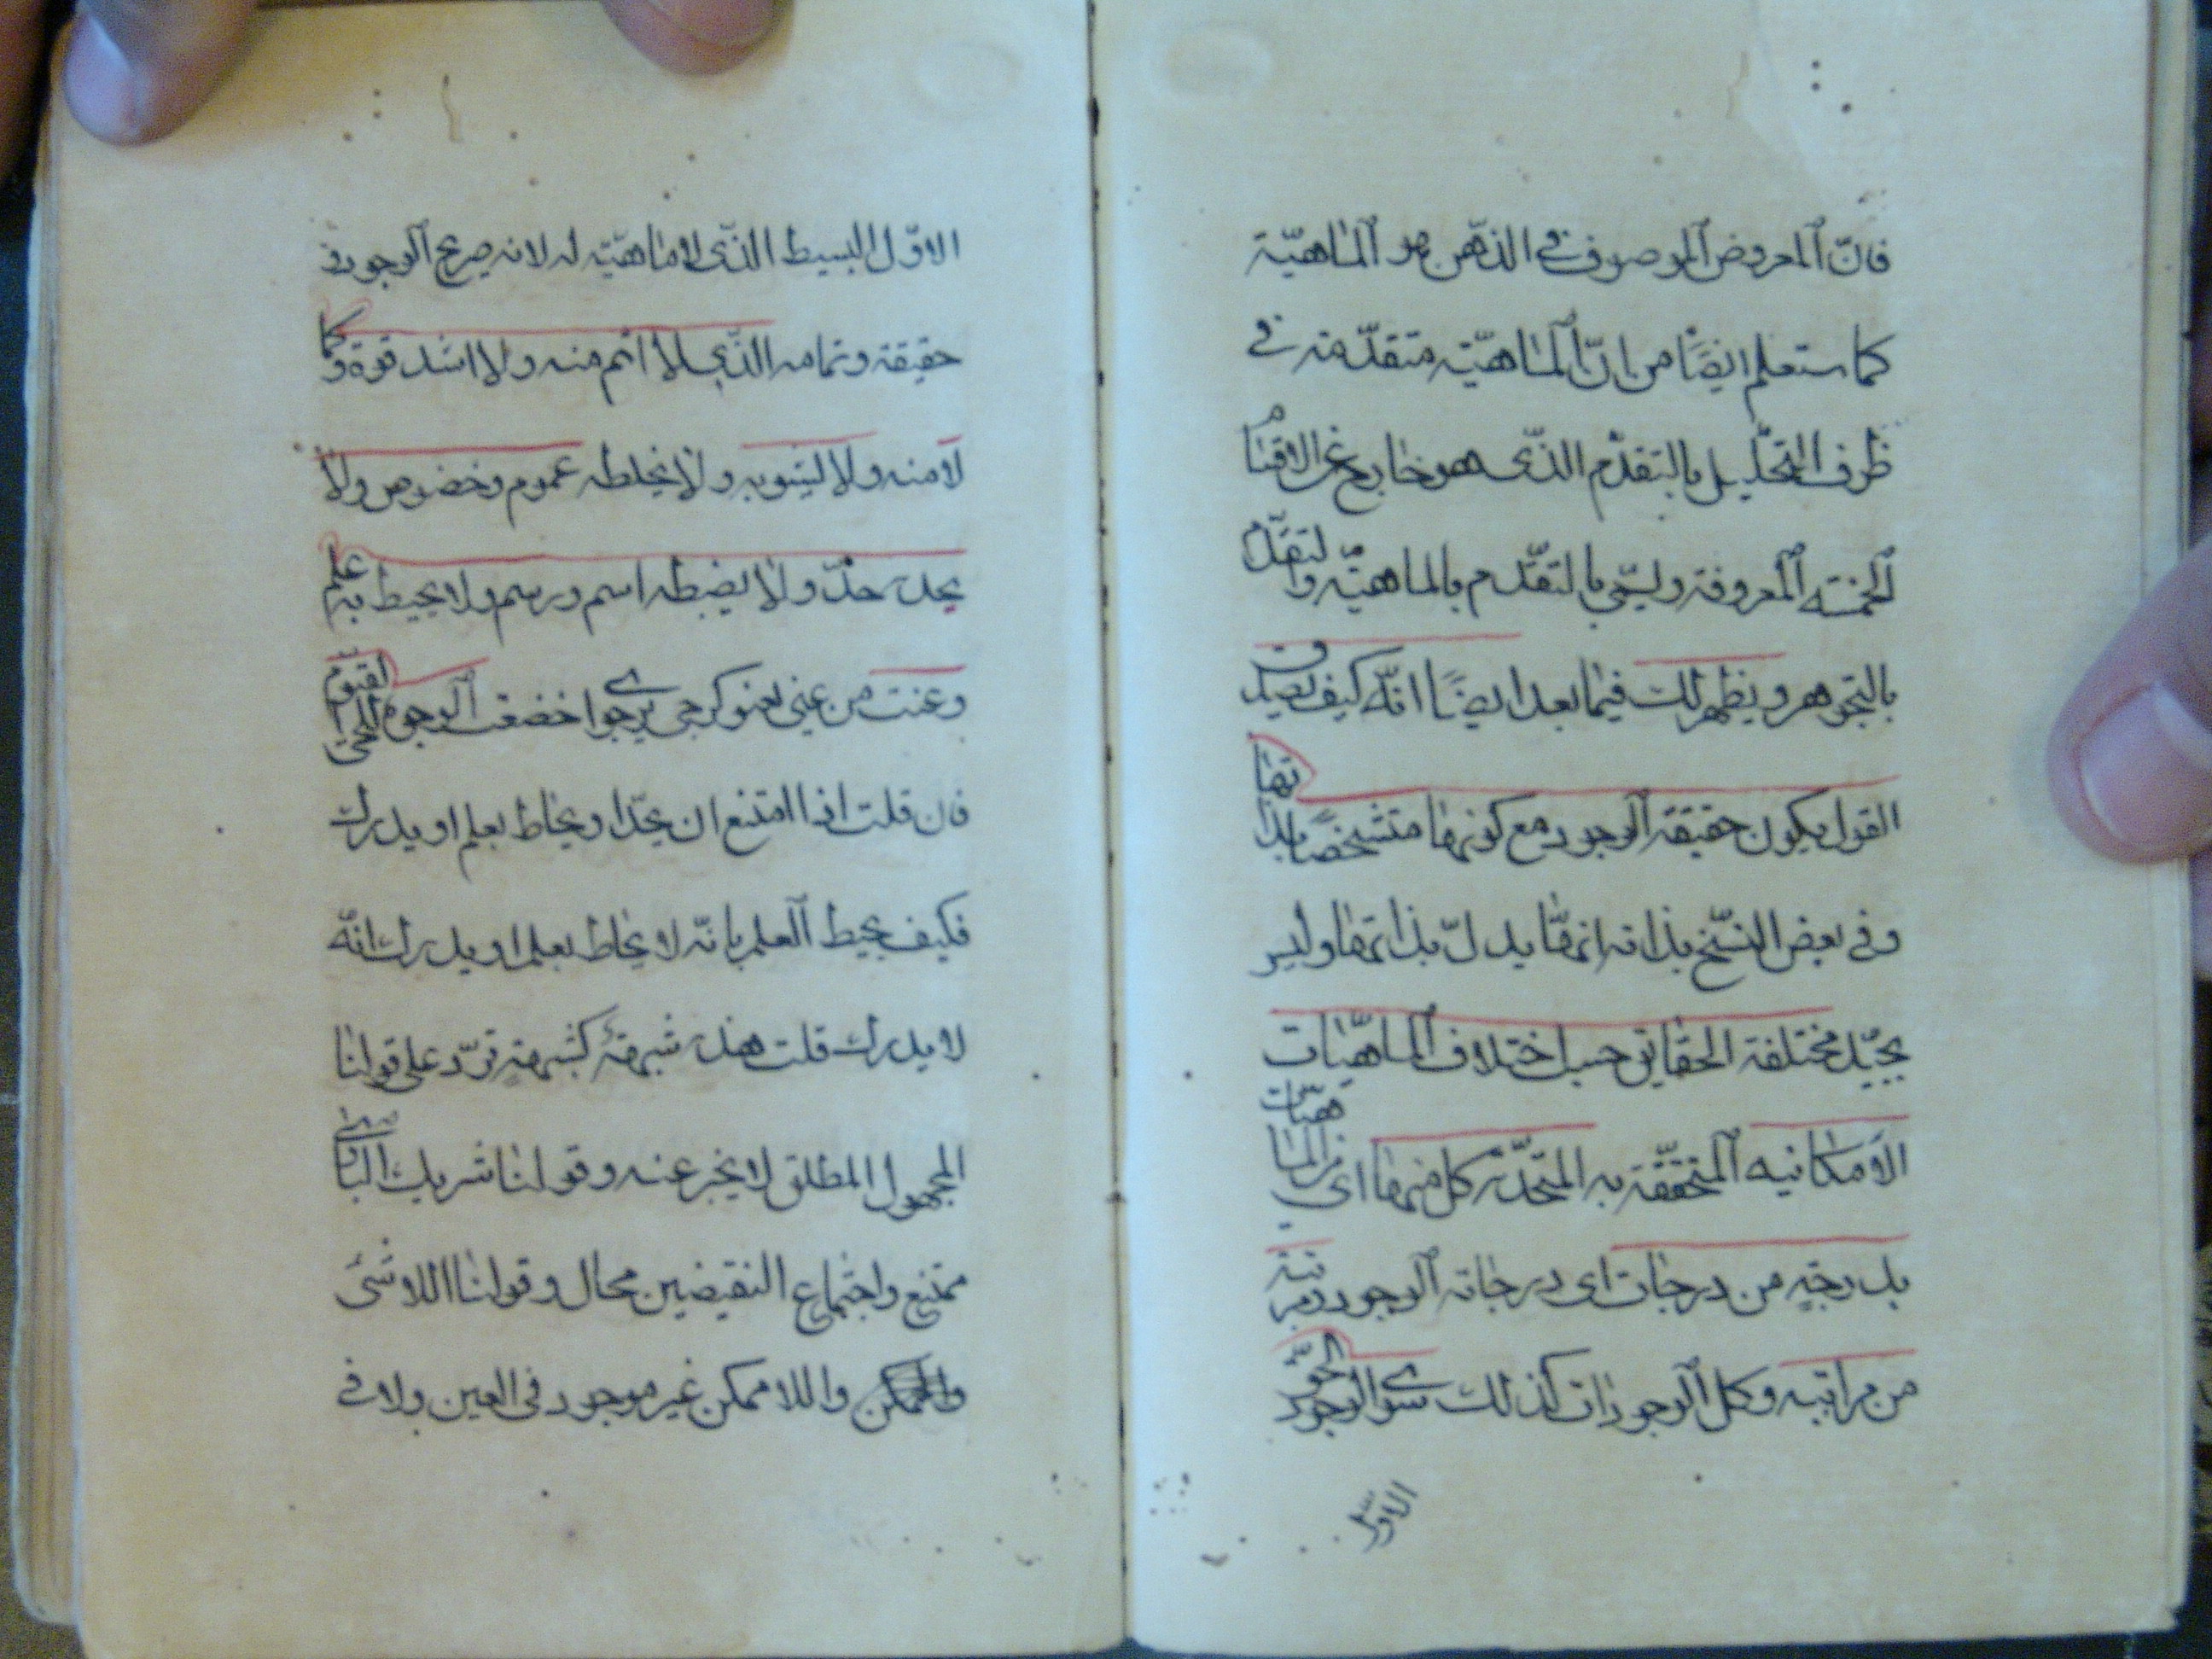 فانّ المعروض الموصوف في الذهن هو الماهيّة
كما ستعلم ايضًا من انّ الماهيّة متقدّمة في
ظرف التحليل بالتقدّم الذّى هو خارج عن الاقسام
الخمسة المعروفة وليسمّى بالتقدّم بالماهيّة والتقدّم
بالتجوهر ويظهر لك فيما بعد ايضًا انّه كيف يصدق
القول بكون حقيقة الوجود مع كونها متشخصًا بذاتها
وفى بعض النسّخ بذاته انمّا يدلّ بذاتها وليس
بجيّد مختلفة الحقايق حسب اختلاف الماهيّات
الامكانيه المتحقّقة به المتّحدة كل منها اى من الماهيّات
بدرجةٍ من درجات اى درجاته الوجود ومرتبة
من مراتبه وكل الوجودات كذلك سوى الوجود الحق
الاوّل
الاوّل البسيط الذّى لا ماهيّة له لانه صريح الوجود فى
حقيقة وتمامه الذّى لا اتم منه ولا اشد قوة وكما
لا منه ولا ليشوبه ولا يخالطه عموم وخصوص ولا
يحده حدّ ولا يضبطه اسم ورسم ولا يحيط به علم
وعنت من عنى يعنو كرجى يرجوا خضعت الوجوه للحى القيّوم
فان قلت اذا امتنع ان يحّد او يحاط بعلم او يدرك
فكيف يحيط العلم بانّه لا يحاط بعلم او يدرك انّه
لا يدرك قلت هذه شبهة كشبهة تردّ على قولنا
المجهول المطلق لا يخبر عنه وقولنا شريك البارى
ممتنع واجتماع النقيضين محال وقولنا اللاشئ
واللاممكن غير موجود فى العين ولا فى